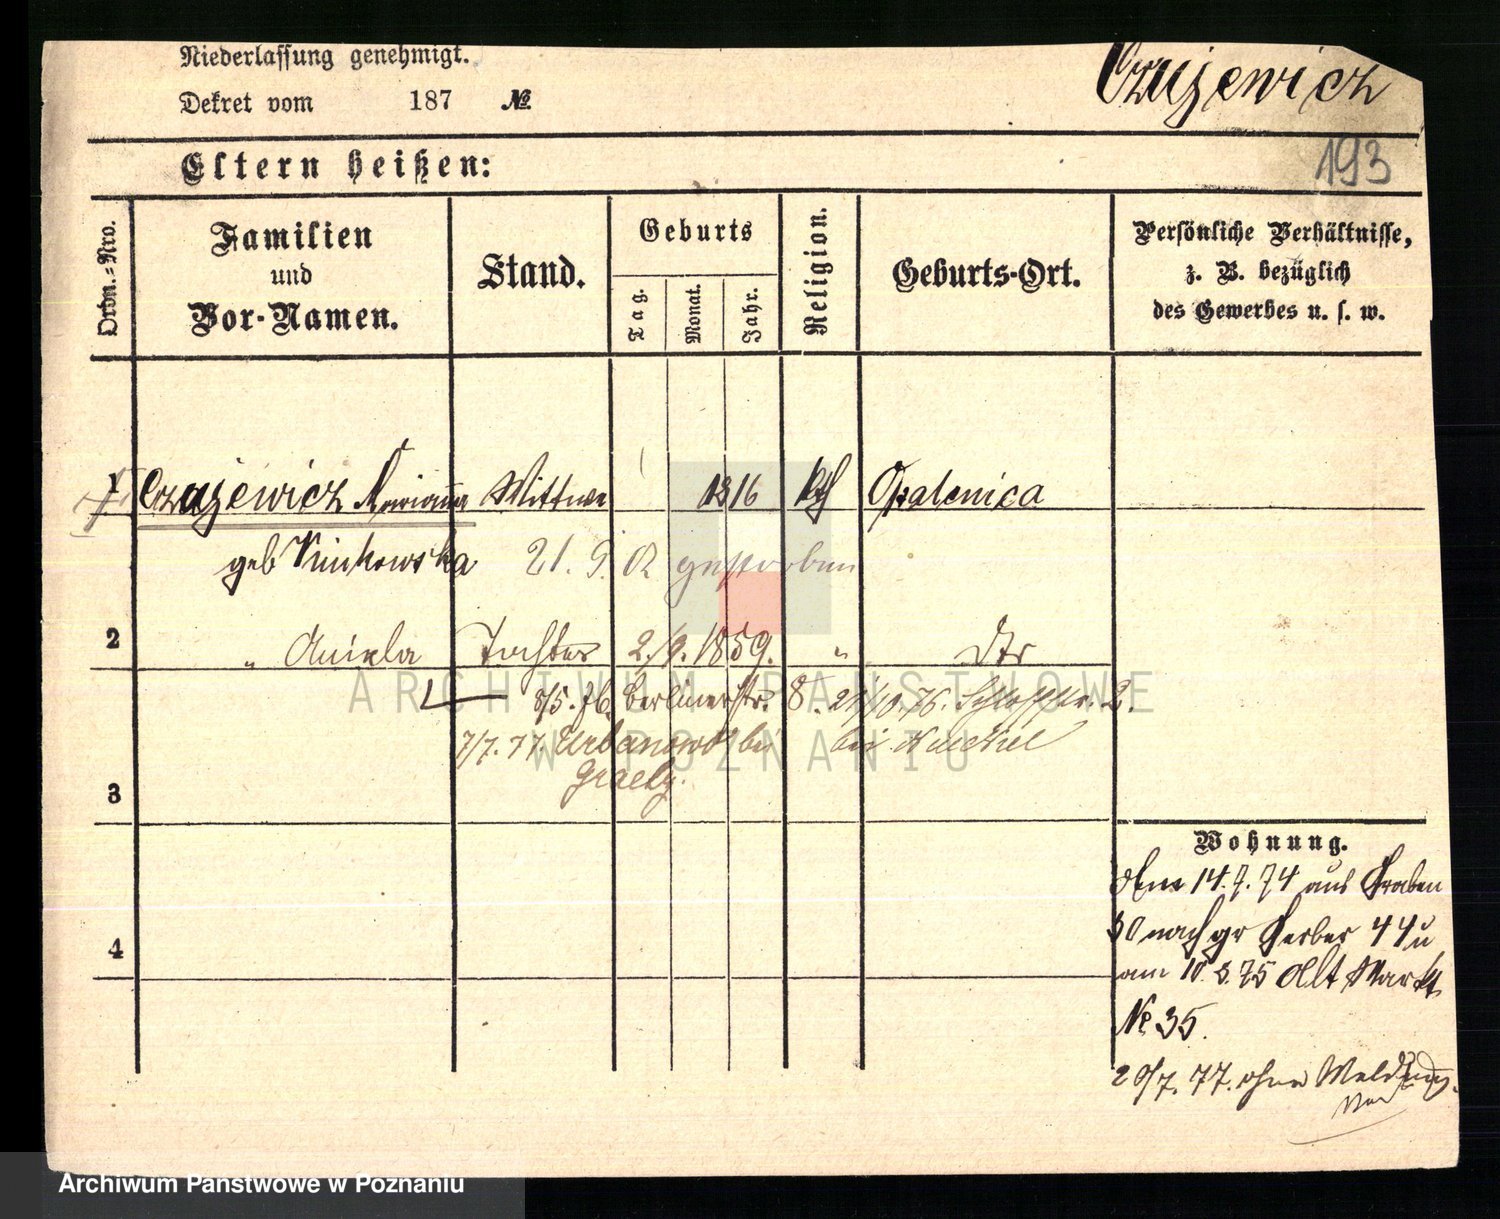 Niederlassung genehmigt.
Dekret vom 187 №
Czujewicz
193
Eltern heißen:
Ordn.-Nro.
Familien
und
Vor-Namen.
Stand.
Geburts
Tag.
Monat.
Jahr.
Religion.
Geburts-Ort.
Persönliche Verhältnisse,
z. B. bezüglich
des Gewerbes u. s. w.
1 Czujewicz Marianna Wittwe 1816 kth Opalenica
geb 21. 9. gestorben
2 " Aniela Tochter 2./9. 1859. " Dto
8/5. 76. Berlinerstr. 8. 21/10. 76. Schloßstr. 2.
7/7. 77. Urbanowo bei
bei
3
Wohnung.
Am 14. 7. 74 aus Graben
30 nach gr Gerber 44 u
4
am 10. 8. 75 Alt Markt
No 35.
20/7. 77. ohne Meldung.
ARCHIWUM PAŃSTWOWE
W POZNANIU
Archiwum Państwowe w Poznaniu